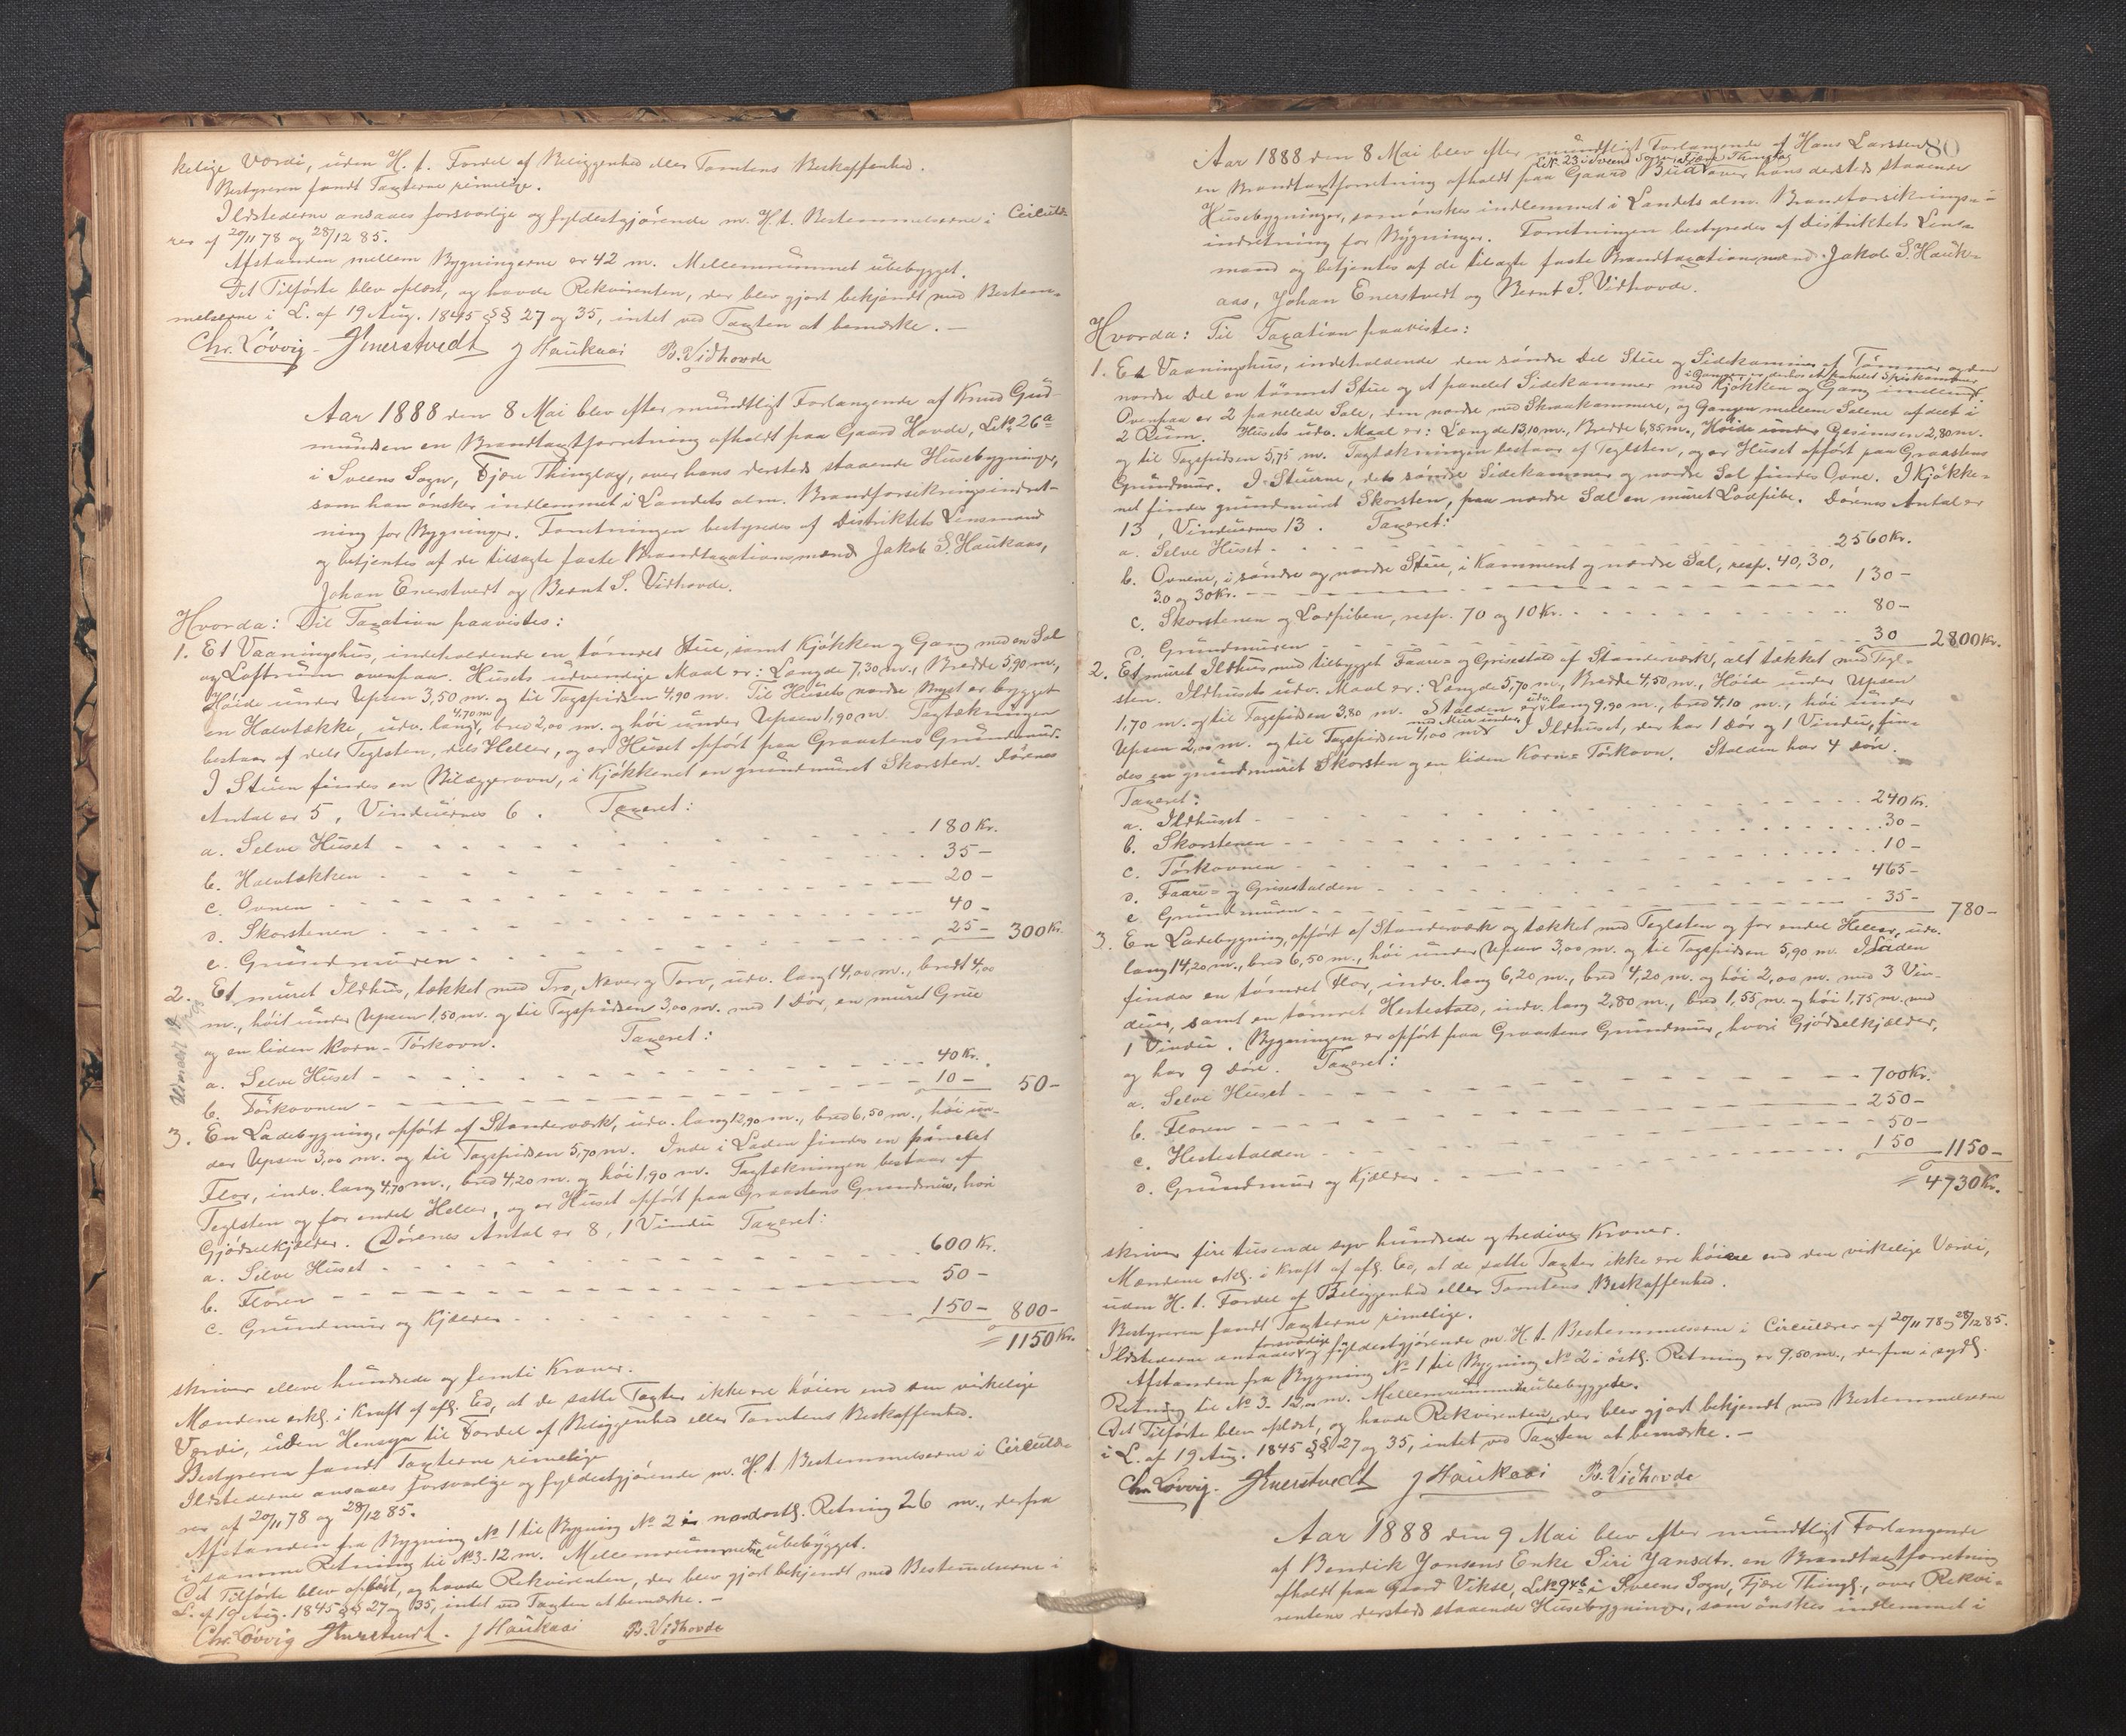 kelige Værdi, uden H. t. Fordel af Beliggenhed eller Tomtens Beskaffenhed.
Bestyreren fandt Taxterne rimelige.
Ildstederne ansaaes forsvarlige og fyldestgjørende m. H. t. Bestemmelserne i Circulæ-
rer af 20/11 78 og 28/12 85.
Afstanden mellem Bygningerne er 42 m. Mellemrummet ubebygget.
Det Tilførte blev oplæst, og havde Rekvirenten, der blev gjort bekjendt med Bestem-
melserne i L. af 19 Aug. 1845 §§ 27 og 35, intet ved Taxten at bemærke. —
Chr. Løvvig. JEnerstvedt J Haukaas B. Vidhovde
Aar 1888 den 8 Mai blev efter mundtligt Forlangende af Knud Gud-
mundsen en Brandtaxtforretning afholdt paa Gaard Hovde, L.№ 26a
i Sveens Sogn, Fjære Thinglag, over hans dersteds staaende Husebygninger,
som han ønsker indlemmet i Landets alm. Brandforsikringsindret-
ning for Bygninger. Forretningen bestyredes af Distriktets Lensmand
og betjentes af de tilsagte faste Brandtaxationsmænd Jakob S. Haukaas,
Johan Enerstvedt og Bernt S. Vidhovde.
Hvorda: Til Taxation paavistes:
1. Et Vaaningshus, indeholdende en tømret Stue, samt Kjøkken og Gang med en Sal
og Loftrum ovenpaa. Husets udvendige Maal er: Længde 7,30 m., Bredde 5,90 m,
Høide under Upsen 3,50 m. og til Tagspidsen 4,90 m. Til Husets nordre Side er bygget
en Halvtække, udv. lang 4,70 m, bred 2,00 m. og høi under Upsen 1,90 m. Tagtækningen
bestaar af dels Teglsten, dels Heller, og er Huset opført paa Graastens Grundmur.
I Stuen findes en Bilæggerovn, i Kjøkkenet en grundmuret Skorsten. Dørenes
Antal er 5, Vinduernes 6. Taxeret:
a. Selve Huset - - - 180 Kr.
b. Halvtækken - - - 35 —
c. Ovnen - - - 20 —
d. Skorstenen - - - 40 —
e. Grundmuren - - - 25 — 300 Kr.
2. Et muret Ildhus, tækket med Tro, Næver og Torv, udv. langt 4,00 m., bredt 4,00
m., høit under Upsen 1,50 m. og til Tagspidsen 3,00 m. med 1 Dør, en muret Grue
og en liden Korn-Tørkovn. Taxeret:
a. Selve Huset - - - 40 Kr.
b. Tørkovnen - - - 10 — 50 —
3. En Ladebygning, opført af Standerværk, udv. lang 12,90 m., bred 6,50 m., høi un-
der Upsen 3,00 m. og til Tagspidsen 5,70 m. Inde i Laden findes en panelet
Flor, indv. lang 4,70 m., bred 4,20 m. og høi 1,90 m. Tagtækningen bestaar af
Teglsten og for endel Heller, og er Huset opført paa Graastens Grundmur, hvori
Gjødselkjælder. Dørenes Antal er 8, 1 Vindu Taxeret:
a. Selve Huset - - - 600 Kr.
b. Floren - - - 50 —
c. Grundmur og Kjælder - - - 150 — 800 —
= 1150 Kr.
skriver elleve hundrede og femti Kroner.
Mændene erkl. i Kraft af afl. Ed, at de satte Taxter ikke ere høiere end den virkelige
Værdi, uden Hensyn til Fordel af Beliggenhed eller Tomtens Beskaffenhed.
Bestyreren fandt Taxterne rimelige
Ildstederne ansaaes forsvarlige og fyldestgjørende m. H. t. Bestemmelserne i Circulæ-
rer af 20/11 78 og 28/12 85.
Afstanden fra Bygning № 1 til Bygning № 2 i nordostl. Retning 26 m., derfra
i samme Retning til № 3 - 12 m. Mellemrummene ubebygget.
Det Tilførte blev oplæst, og havde Rekvirenten, der blev gjort bekjendt med Bestemmelserne i
L. af 19 Aug. 1845 §§ 27 og 35, intet ved Taxten at bemærke. —
Chr. Løvvig JEnerstvedt. J Haukaas B. Vidhovde
80
Aar 1888 den 8 Mai blev efter mundtligt Forlangende af Hans Larssen
L.№ 23 i Sveens Sogn, Fjære Thinglag
en Brandtaxtforretning afholdt paa Gaard Bua over hans dersteds staaende
Husebygninger, som ønskes indlemmet i Landets alm. Brandforsikrings-
indretning for Bygninger. Forretningen bestyredes af Distriktets Lens-
mand og betjentes af de tilsagte faste Brandtaxationsmænd Jakob S. Hauk-
aas, Johan Enerstvedt og Bernt S. Vidhovde.
Hvorda: Til Taxation paavistes:
1. Et Vaaningshus, indeholdende den søndre Del Stue og Sidekammer af Tømmer og den
nordre Del en tømret Stue og et panelet Sidekammer med Kjøkken og Gang imellem,
i Gangen er derhos et panelet Spiskammer
Ovenpaa er 2 panelede Sale, den nordre med Skraakammere, og Gangen mellem Salene afdelt i
2 Rum. Husets udv. Maal er: Længde 13,10 m., Bredde 6,85 m., Høide under Gesimsen 2,80 m.
og til Tagspidsen 5,75 m. Tagtækningen bestaar af Teglsten, og er Huset opført paa Graastens
Grundmur. I Stuerne, det søndre Sidekammer og nordre Sal findes Ovne. I Kjøkke-
net findes grundmuret Skorsten, paa nordre Sal en muret Lodpibe. Dørenes Antal er
13, Vinduernes 13. Taxeret:
a. Selve Huset - - - 2560 Kr.
b. Ovnene, i søndre og nordre Stue, i Kammeret og nordre Sal, resp. 40, 30,
30 og 30 Kr. - - - 130 —
c. Skorstenen og Lodpiben, resp. 70 og 10 Kr. - - - 80 —
d. Grundmuren - - - 30 2800 Kr.
2. Et muret Ildhus, med tilbygget Faare- og Grisestald af Standerværk, alt tækket med Tegl-
sten. Ildhusets udv. Maal er: Længde 5,70 m, Bredde 4,50 m., Høide under Upsen
1,70 m. og til Tagspidsen 3,80 m. Stalden er udv. lang 9,90 m., bred 4,10 m., høi under
Upsen 2,00 m. og til Tagspidsen 4,00 m. med Mur under. I Ildhuset, der har 1 Dør og 1 Vindu, fin-
des en grundmuret Skorsten og en liden Korn-Tørkovn. Stalden har 4 Døre.
Taxeret:
a. Ildhuset - - - 240 Kr.
b. Skorstenen - - - 30 —
c. Tørkovnen - - - 10 —
d. Faare- og Grisestalden - - - 465 —
e Grundmuren - - - 35 — 780 —
3. En Ladebygning, opført af Standerværk og tækket med Teglsten og for endel Heller, udv.
lang 14,20 m., bred 6,50 m., høi under Upsen 3,00 m. og til Tagspidsen 5,90 m. I Laden
findes en tømret Flor, indv. lang 6,20 m., bred 4,20 m. og høi 2,00 m. med 3 Vin-
duer, samt en tømret Hestestald, indv. lang 2,80 m., bred 1,55 m. og høi 1,75 m. med
1 Vindu. Bygningen er opført paa Graastens Grundmur, hvori Gjødselkjælder,
og har 9 Døre. Taxeret:
a. Selve Huset - - - 700 Kr.
b. Floren - - - 250 —
c. Hestestalden - - - 50 —
d. Grundmur og Kjælder - - - 150 1150 —
= 4730 Kr.
skriver fire tusende syv hundrede og tredive Kroner.
Mændene erkl. i Kraft af afl. Ed, at de satte Taxter ikke ere høiere end den virkelige Værdi,
uden H. t. Fordel af Beliggenhed eller Tomtens Beskaffenhed.
Bestyreren fandt Taxterne rimelige.
Ildstederne ansaaes forsvarlige og fyldestgjørende m. H. t. Bestemmelserne i Circulærer af 20/11 78 og 28/12 85.
Afstanden fra Bygning № 1 til Bygning № 2 i østl. Retning er 9,50 m., derfra i sydl.
Retning til № 3 - 12,00 m. Mellemrummene ubebyggede.
Det Tilførte blev oplæst, og havde Rekvirenten, der blev gjort bekjendt med Bestemmelserne
i L. af 19 Aug. 1845 §§ 27 og 35, intet ved Taxten at bemærke. —
Chr. Løvvig. JEnerstvedt J Haukaas B. Vidhovde
Aar 1888 den 9 Mai blev efter mundtligt Forlangende
af Bendik Jonsens Enke Siri Jansdtr. en Brandtaxtforretning
afholdt paa Gaard Vikse, L.№ 94b i Sveens Sogn, Fjære Thingl., over Rekvi-
rentens dersteds staaende Husebygninger, som ønskes indlemmet i